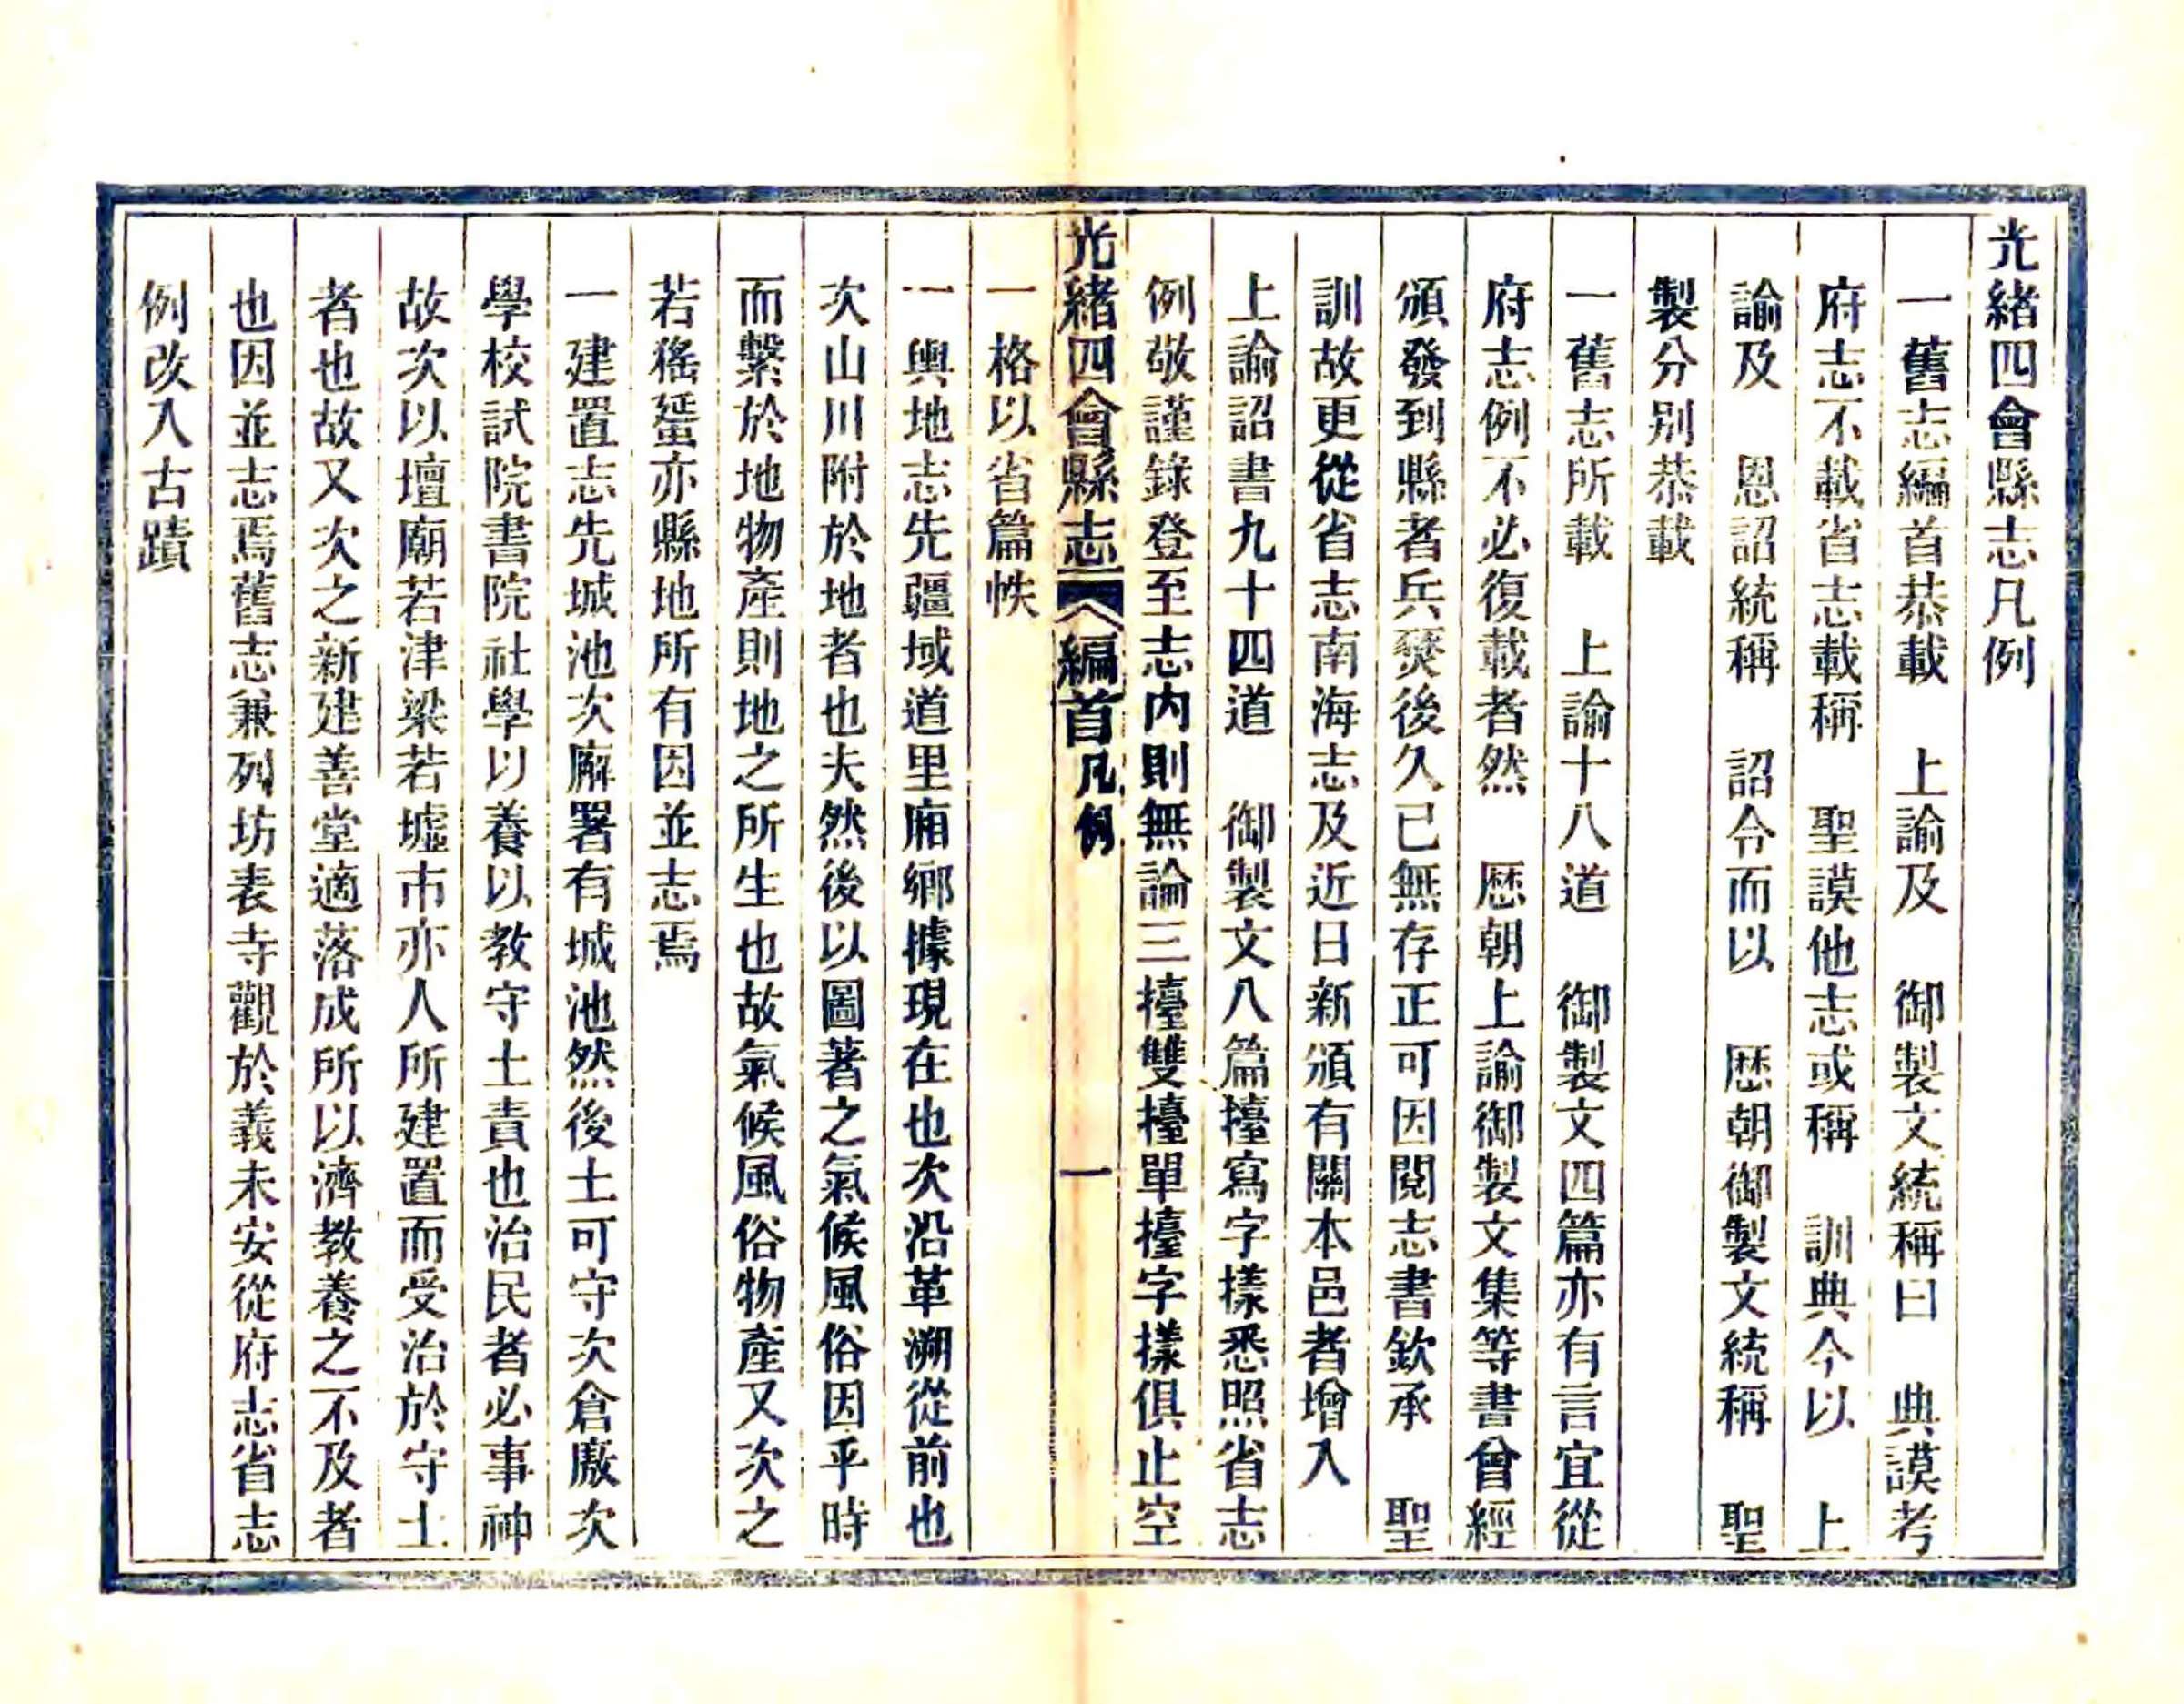 光緒四會縣志凡例
一舊志編首恭載　上諭及　御製文統稱曰　典謨考
府志不載省志載稱　聖謨他志或稱　訓典今以　上
諭及　恩詔統稱　詔令而以　歷朝御製文統稱　聖
製分別恭載
一舊志所載　上諭十八道　御製文四篇亦有言宜從
府志例不必復載者然　歷朝上諭御製文集等書曾經
頒發到縣者兵燹後久已無存正可因閱志書欽承　聖
訓故更從省志南海志及近日新頒有關本邑者增入
上諭詔書九十四道　御製文八篇擡寫字樣悉照省志
例敬謹錄登至志內則無論三擡雙擡單擡字樣俱止空
一格以省篇帙
光緒四會縣志　編首凡例　一
一輿地志先疆域道里廂鄉據現在也次沿革溯從前也
次山川附於地者也夫然後以圖著之氣候風俗因乎時
而繫於地物產則地之所生也故氣候風俗物產又次之
若猺蜑亦縣地所有因並志焉
一建置志先城池次廨署有城池然後土可守次倉廒次
學校試院書院社學以養以教守土責也治民者必事神
故次以壇廟若津梁若墟市亦人所建置而受治於守土
者也故又次之新建善堂適落成所以濟教養之不及者
也因並志焉舊志兼列坊表寺觀於義未安從府志省志
例改入古蹟